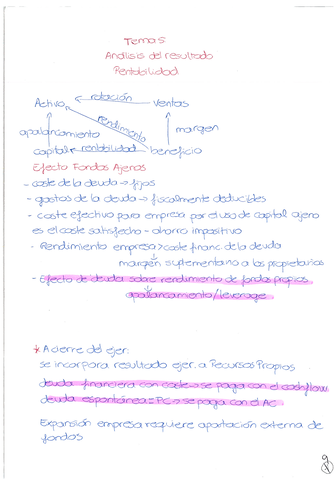 Tema 5
Análisis del resultado
Rentabilidad
Activo ← rotación Ventas
rendimiento
apalancamiento margen
capital ← rentabilidad beneficio
Efecto Fondos Ajenos
- coste de la deuda → fijos
- gastos de la deuda → fiscalmente deducibles
- coste efectivo para empresa por el uso de capital ajeno
es el coste satisfecho - ahorro impositivo
- Rendimiento empresa > coste financ. de la deuda
margen suplementario a los propietarios
- Efecto de deuda sobre rendimiento de fondos propios
apalancamiento/leverage
* A cierre del ejer:
se incorpora resultado ejer. a Recursos Propios
deuda financiera con coste → se paga con el cashflow
deuda espontánea = PC → se paga con el AC
Expansión empresa requiere aportación externa de
fondos